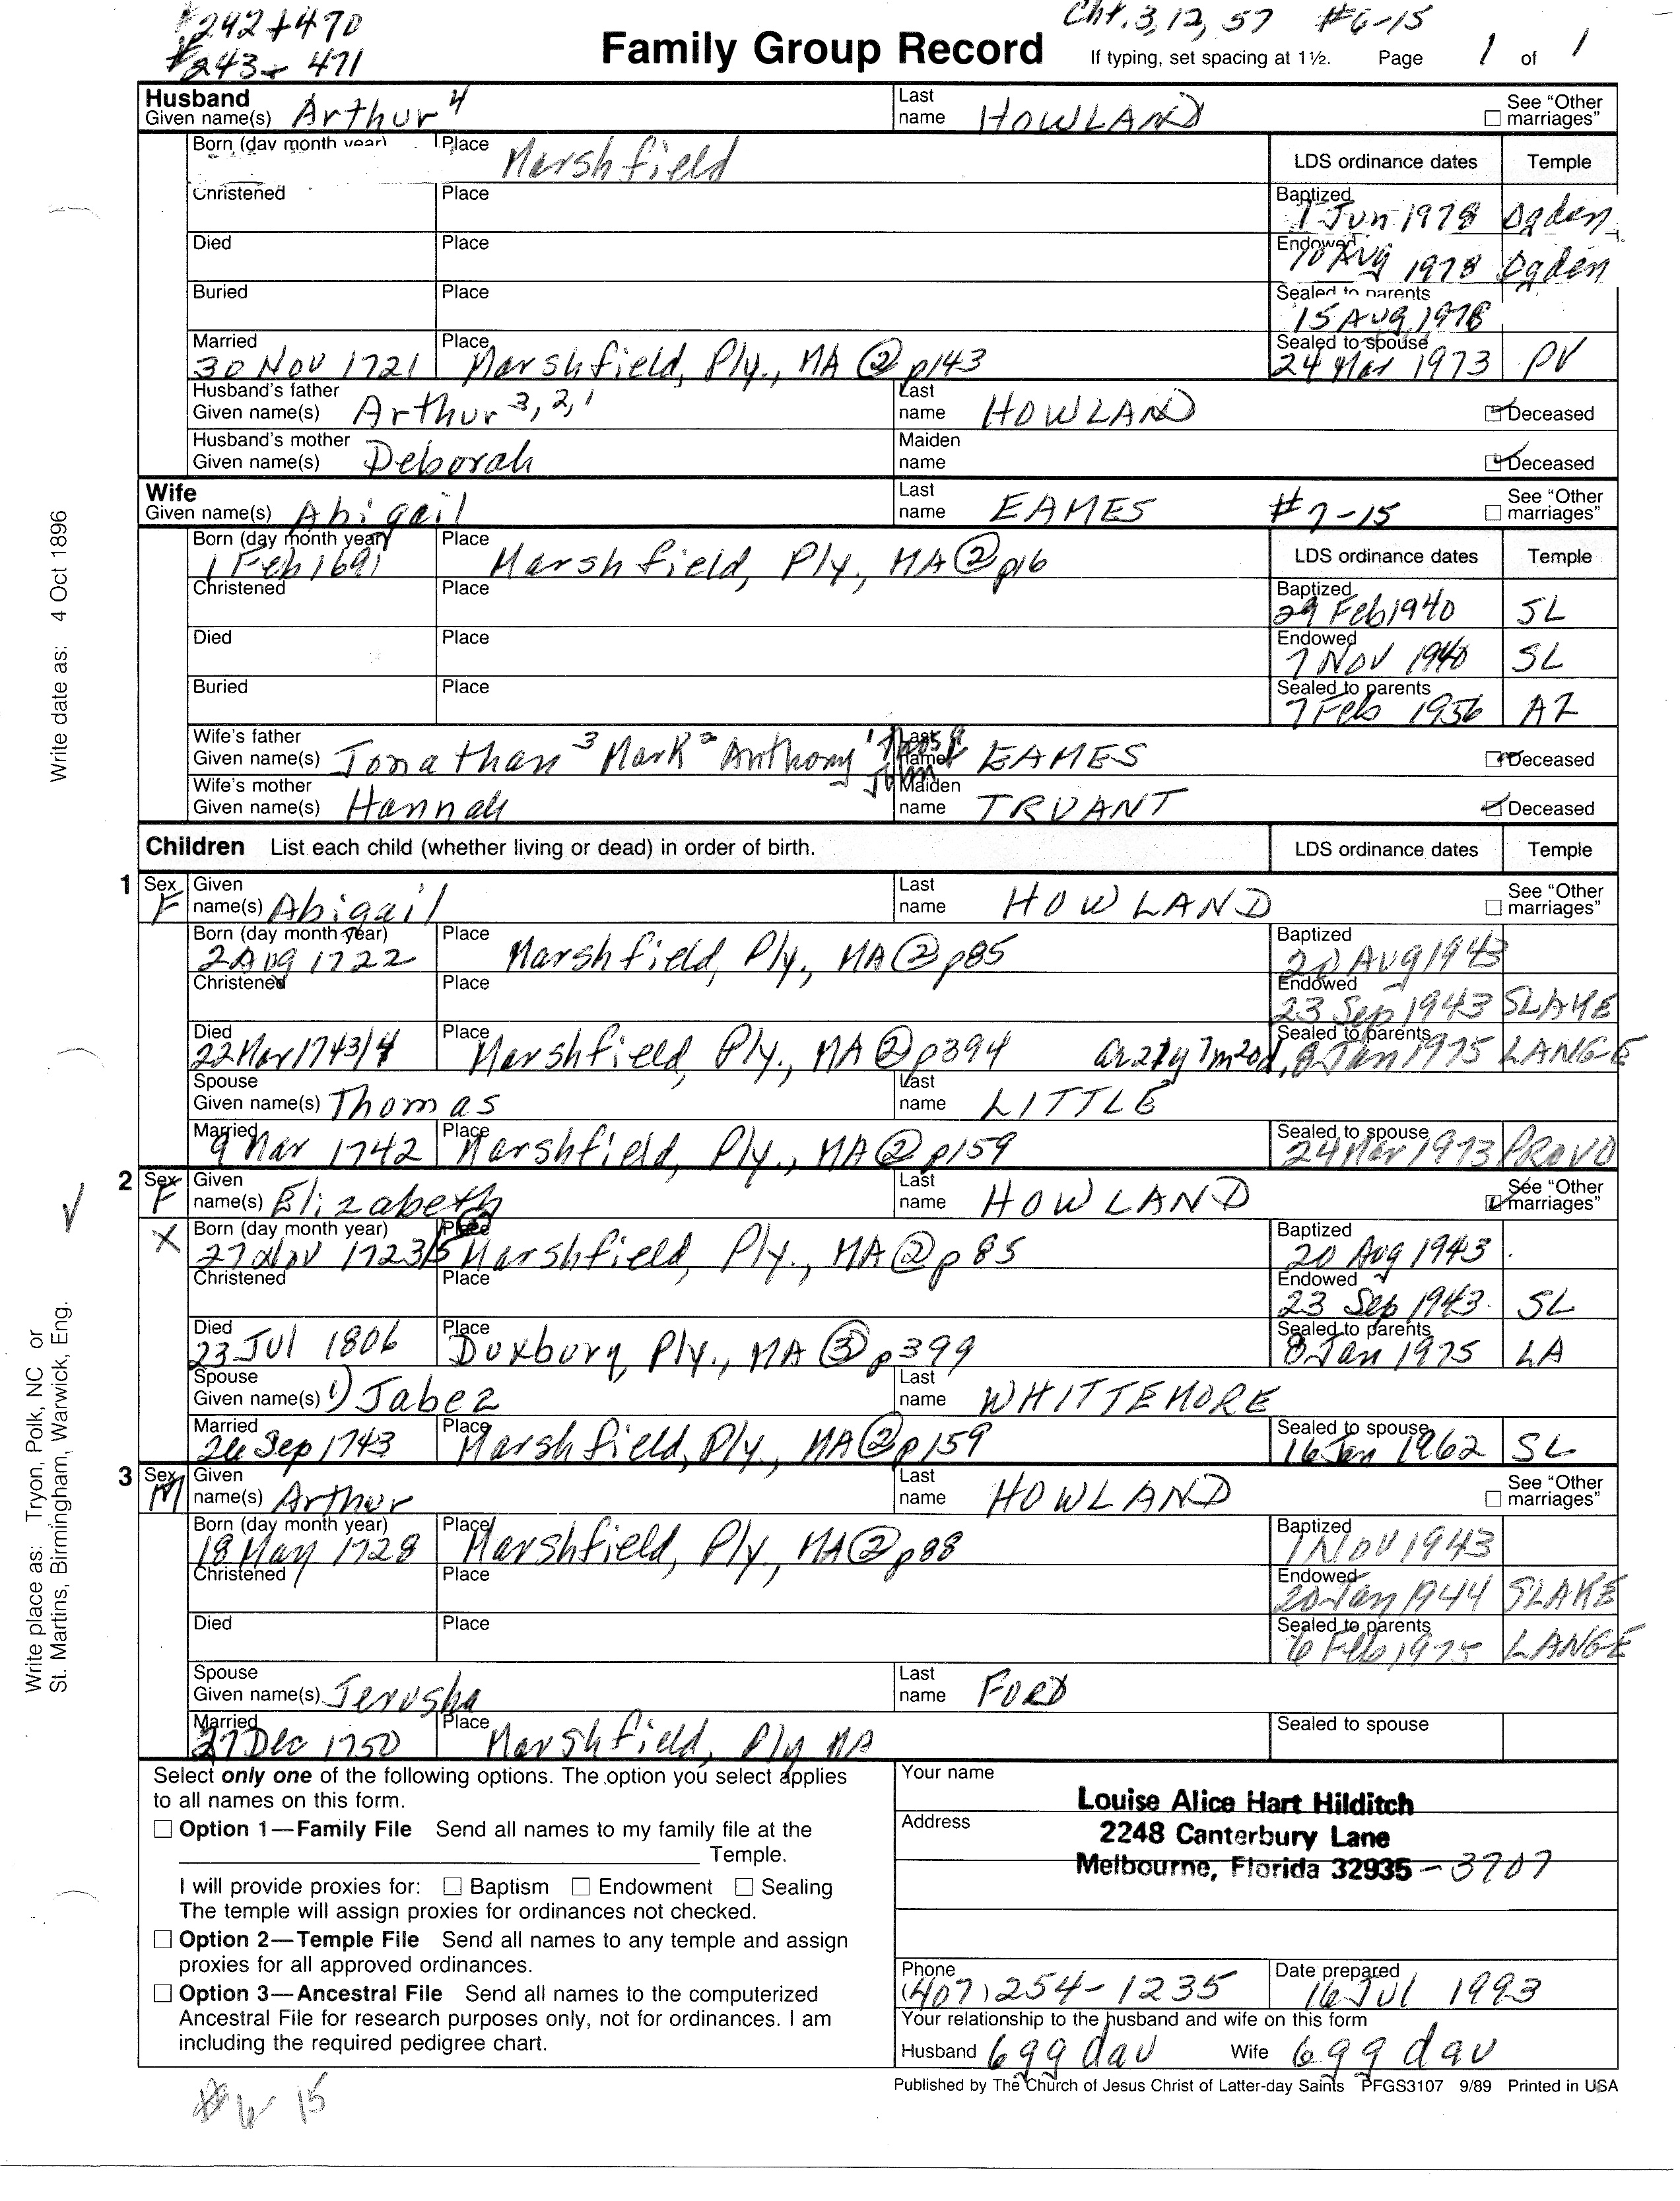 #242 + 470
#243 - 471
Cht. 3, 12, 57 #6-15
Family Group Record
If typing, set spacing at 1½. Page 1 of 1
Husband
Given name(s) Arthur 4 Last name HOWLAND See "Other marriages"
Born (day month year) Place Marshfield LDS ordinance dates Temple
Christened Place Baptized 1 Jun 1978 Ogden
Died Place Endowed 10 Aug 1978 Ogden
Buried Place Sealed to parents 15 Aug 1978
Married 30 Nov 1721 Place Marshfield, Ply., MA @ 2 p143 Sealed to spouse 24 Mar 1973 PV
Husband's father
Given name(s) Arthur 3, 2, 1 Last name HOWLAND Deceased
Husband's mother
Given name(s) Deborah Maiden name Deceased
Wife
Given name(s) Abigail Last name EAMES #7-15 See "Other marriages"
Born (day month year) 1 Feb 1691 Place Marshfield, Ply., MA @ 2 p16 LDS ordinance dates Temple
Christened Place Baptized 29 Feb 1940 SL
Died Place Endowed 7 Nov 1940 SL
Buried Place Sealed to parents 7 Feb 1956 AZ
Wife's father
Given name(s) Jonathan 3 Mark 2 Anthony 1 Last name EAMES Deceased
John
Wife's mother
Given name(s) Hannah Maiden name TRUANT Deceased
Children List each child (whether living or dead) in order of birth. LDS ordinance dates Temple
1 Sex F Given name(s) Abigail Last name HOWLAND See "Other marriages"
Born (day month year) 2 Aug 1722 Place Marshfield, Ply., MA @ 2 p85 Baptized 20 Aug 1943
Christened Place Endowed 23 Sep 1943 SLAKE
Died 22 Mar 1743/4 Place Marshfield, Ply., MA @ 2 p394 a 21y 7m 20d, Sealed to parents 8 Jan 1975 LANGE
Spouse
Given name(s) Thomas Last name LITTLE
Married 9 Mar 1742 Place Marshfield, Ply., MA @ 2 p159 Sealed to spouse 24 Mar 1973 PROVO
2 Sex F Given name(s) Elizabeth Last name HOWLAND See "Other marriages"
X Born (day month year) 27 Nov 1723/5 Place Marshfield, Ply., MA @ 2 p85 Baptized 20 Aug 1943
Christened Place Endowed 23 Sep 1943 SL
Died 23 Jul 1806 Place Duxbury, Ply., MA 3 p399 Sealed to parents 8 Jan 1975 LA
Spouse
Given name(s) 1) Jabez Last name WHITTEMORE
Married 26 Sep 1743 Place Marshfield, Ply., MA @ 2 p159 Sealed to spouse 16 Jan 1962 SL
3 Sex M Given name(s) Arthur Last name HOWLAND See "Other marriages"
Born (day month year) 18 May 1728 Place Marshfield, Ply., MA @ 2 p88 Baptized 1 Nov 1943
Christened Place Endowed 20 Jan 1944 SLAKE
Died Place Sealed to parents 6 Feb 1975 LANGE
Spouse
Given name(s) Jerusha Last name FORD
Married 27 Dec 1750 Place Marshfield, Ply MA Sealed to spouse
Select only one of the following options. The option you select applies
to all names on this form.
Option 1—Family File Send all names to my family file at the
Temple.
I will provide proxies for: Baptism Endowment Sealing
The temple will assign proxies for ordinances not checked.
Option 2—Temple File Send all names to any temple and assign
proxies for all approved ordinances.
Option 3—Ancestral File Send all names to the computerized
Ancestral File for research purposes only, not for ordinances. I am
including the required pedigree chart.
Your name Louise Alice Hart Hilditch
Address 2248 Canterbury Lane
Melbourne, Florida 32935 - 3707
Phone (407) 254-1235 Date prepared 16 Jul 1993
Your relationship to the husband and wife on this form
Husband 6 gg dau Wife 6 gg dau
Published by The Church of Jesus Christ of Latter-day Saints PFGS3107 9/89 Printed in USA
15
Write date as: 4 Oct 1896
Write place as: Tryon, Polk, NC or
St. Martins, Birmingham, Warwick, Eng.